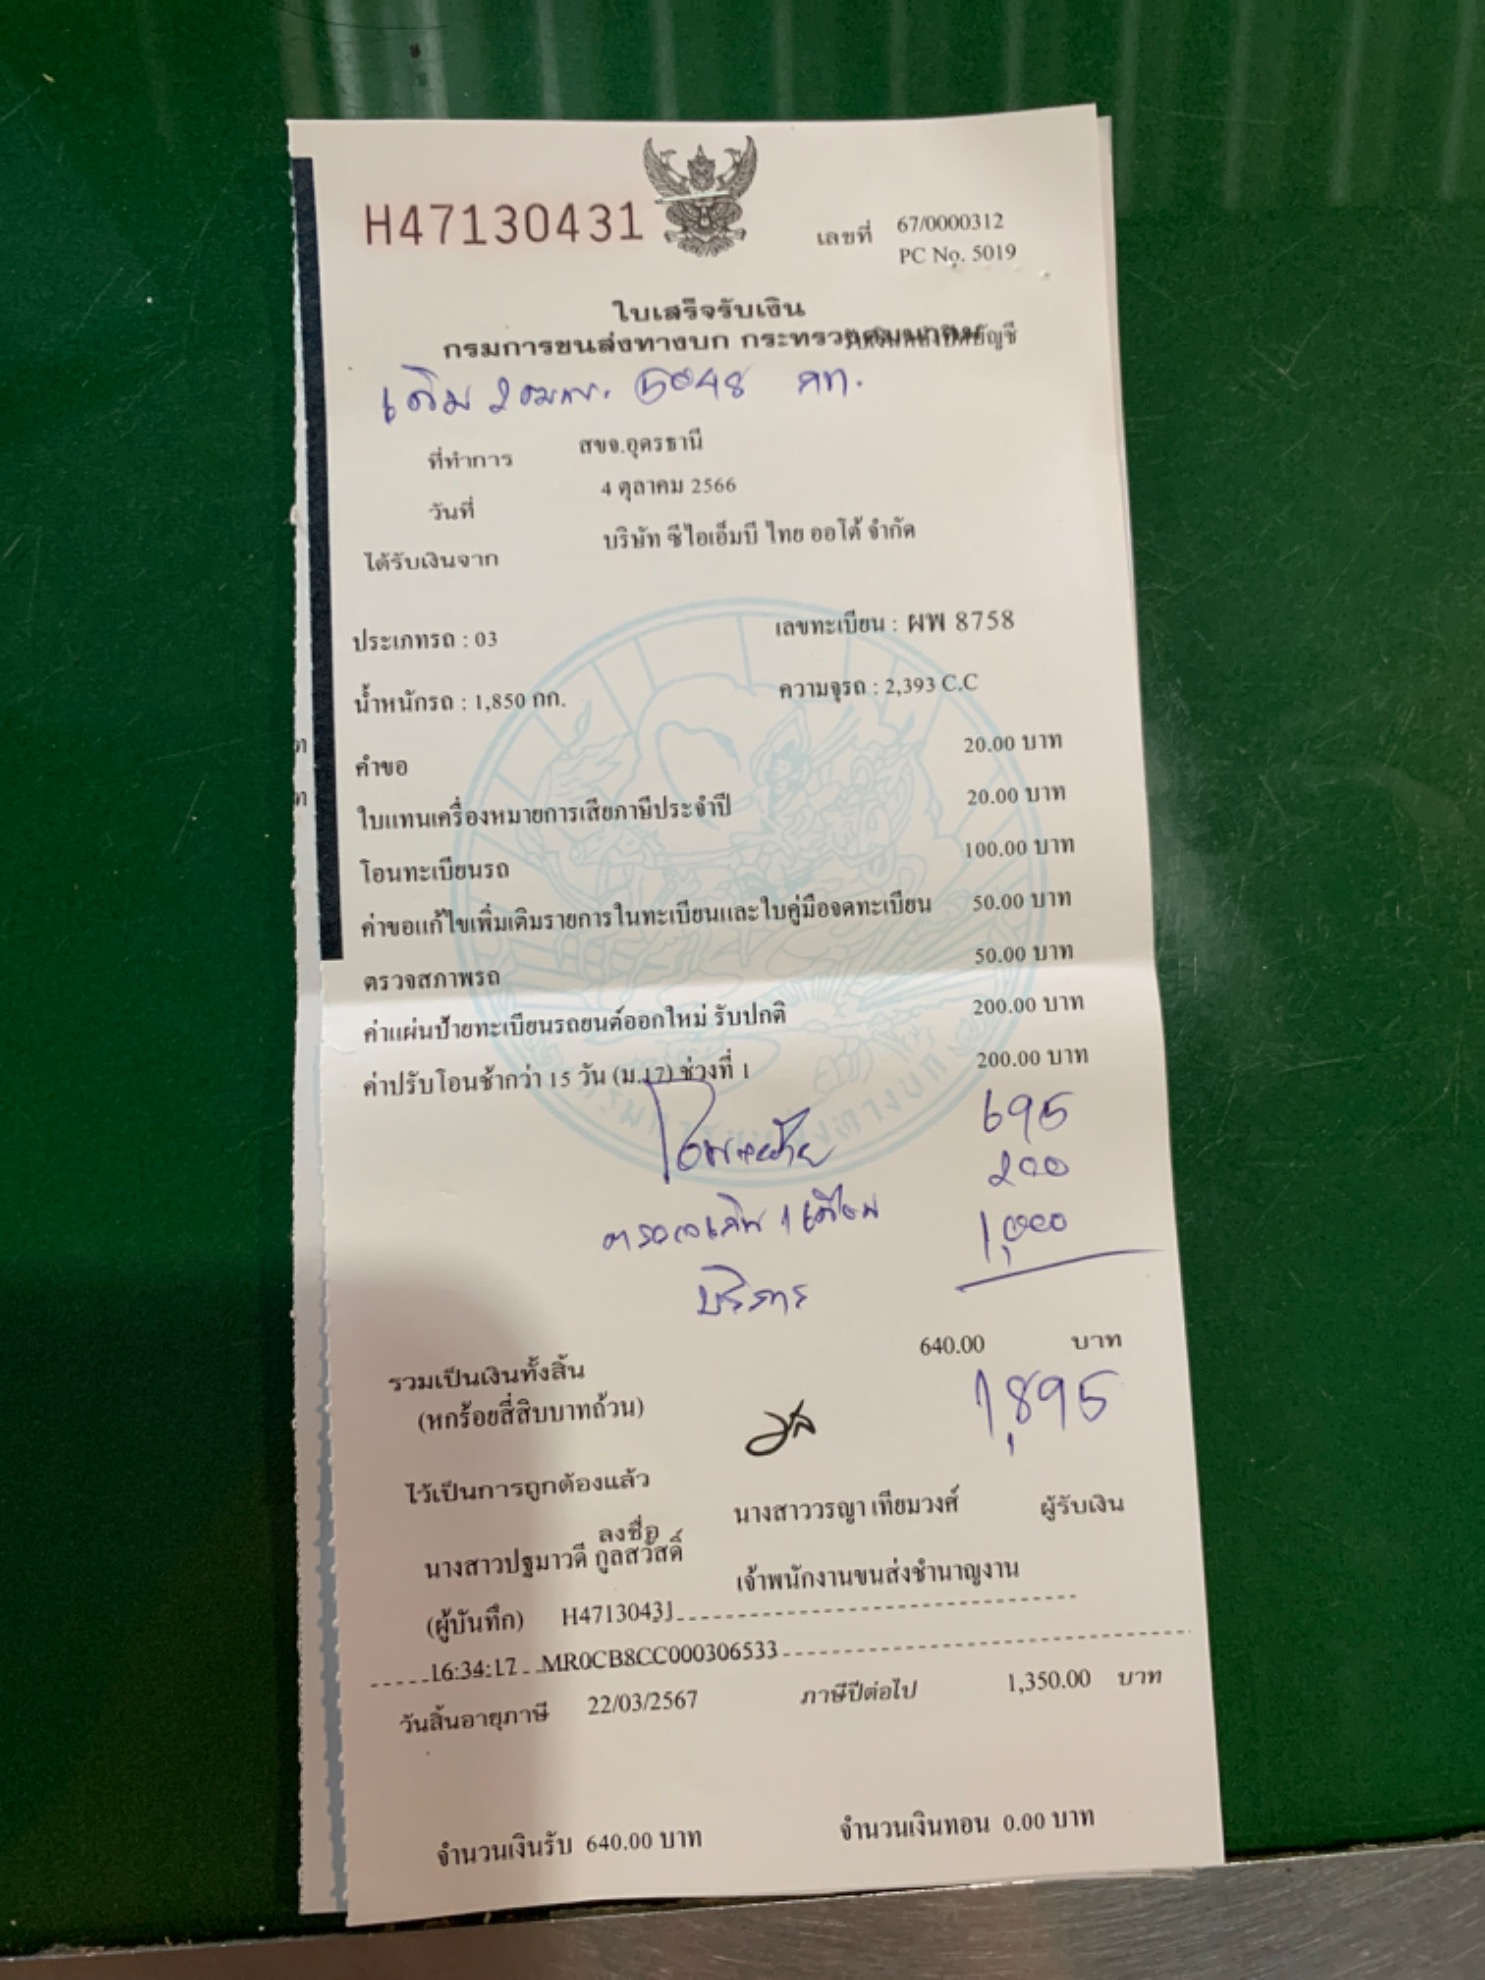 H47130431
เลขที่ 67/0000312
PC No. 5019
ใบเสร็จรับเงิน
กรมการขนส่งทางบก กระทรวงคมนาคม
เดิม 5048 กท.
ที่ทำการ สขจ.อุดรธานี
วันที่ 4 ตุลาคม 2566
ได้รับเงินจาก บริษัท ซีไอเอ็มบี ไทย ออโต้ จำกัด
ประเภทรถ : 03 เลขทะเบียน : ผพ 8758
น้ำหนักรถ : 1,850 กก. ความจุรถ : 2,393 C.C
คำขอ 20.00 บาท
ใบแทนเครื่องหมายการเสียภาษีประจำปี 20.00 บาท
โอนทะเบียนรถ 100.00 บาท
ค่าขอแก้ไขเพิ่มเติมรายการในทะเบียนและใบคู่มือจดทะเบียน 50.00 บาท
ตรวจสภาพรถ 50.00 บาท
ค่าแผ่นป้ายทะเบียนรถยนต์ออกใหม่ รับปกติ 200.00 บาท
ค่าปรับโอนช้ากว่า 15 วัน (ม.17) ช่วงที่ 1 200.00 บาท
695
200
1,000
บริการ
รวมเป็นเงินทั้งสิ้น 640.00 บาท
(หกร้อยสี่สิบบาทถ้วน) 1,895
ไว้เป็นการถูกต้องแล้ว
ลงชื่อ นางสาววรญา เทียมวงศ์ ผู้รับเงิน
นางสาวปฐมาวดี กูลสวัสดิ์ เจ้าพนักงานขนส่งชำนาญงาน
(ผู้บันทึก) H47130431
16:34:17 MR0CB8CC000306533
วันสิ้นอายุภาษี 22/03/2567 ภาษีปีต่อไป 1,350.00 บาท
จำนวนเงินรับ 640.00 บาท จำนวนเงินทอน 0.00 บาท